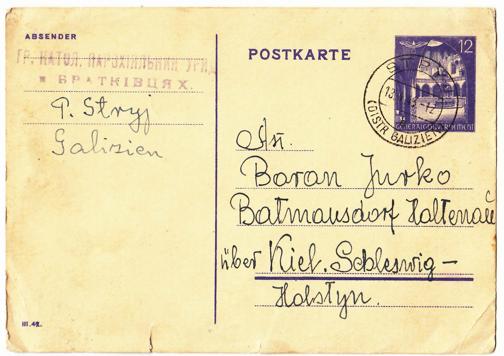 ABSENDER
ГР. КАТОЛ. ПАРОХІЯЛЬНИЙ УРЯД
в БРАТКІВЦЯХ.
P. Stryj
Galizien
POSTKARTE
12
STRYJ
(DISTR. GALIZIEN)
GENERALGOUVERNEMENT
An.
Baran Jurko
Batmausdorf Holtenau
über Kiel. Schleswig-
Holstyn.
III.42.